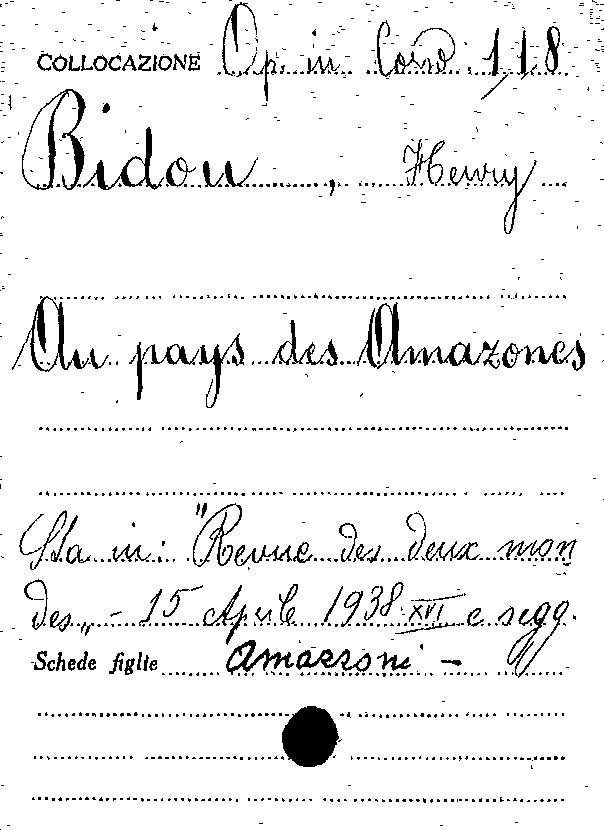 COLLOCAZIONE Op. in Cord. 118
Bidou, Henry
Au pays des Amazones
Sta in: "Revue des deux mon
des„ - 15 Aprile 1938 XVI e segg.
Schede figlie Amazzoni -